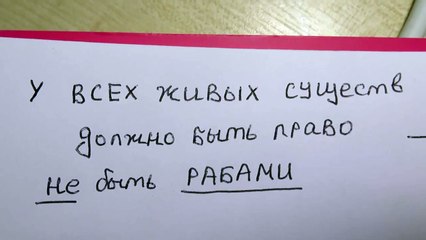 У ВСЕХ ЖИВЫХ СУЩЕСТВ
ДОЛЖНО БЫТЬ ПРАВО
НЕ БЫТЬ РАБАМИ